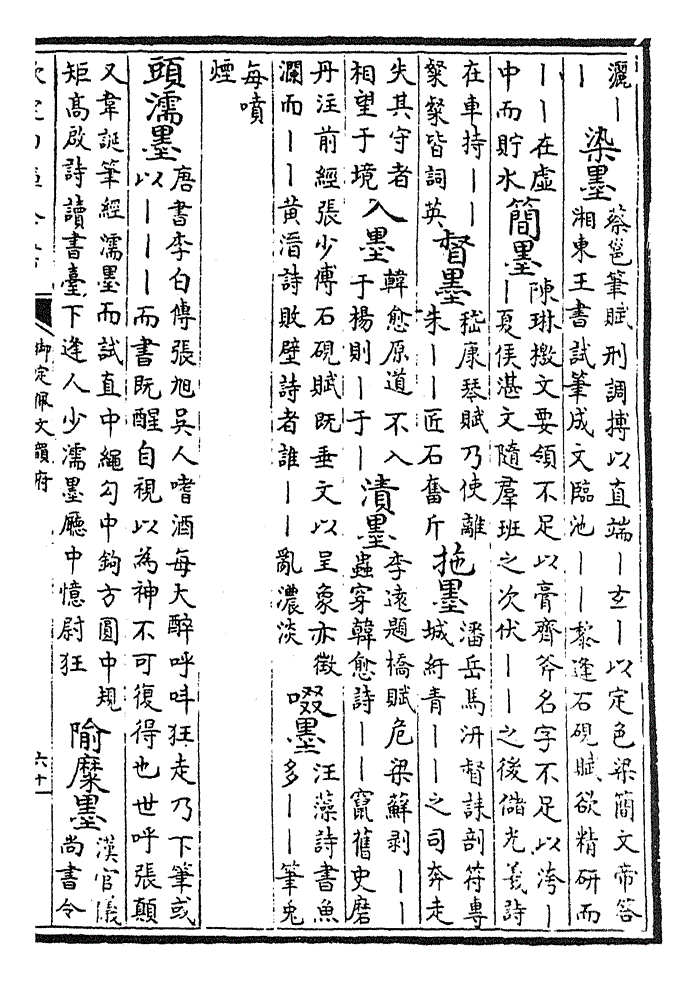 灑丨
丨
染墨
蔡邕筆賦刑調摶以直端丨玄丨以定色梁簡文帝答
湘東王書試筆成文臨池丨丨黎逢石硯賦欲精研而
丨丨在虛
中而貯水
簡墨
陳琳檄文要領不足以膏齊斧名字不足以洿丨
丨夏侯湛文隨羣班之次伏丨丨之後儲光羲詩
在車持丨丨
粲粲皆詞英
督墨
嵇康琴賦乃使離
朱丨丨匠石奮斤
拖墨
潘岳馬汧督誄剖符專
城紆青丨丨之司奔走
失其守者
相望于境
入墨
韓愈原道不入
于楊則丨于丨
漬墨
李遠題橋賦危梁蘚剥丨丨
蟲穿韓愈詩丨丨竄舊史磨
丹注前經張少傅石硯賦既垂文以呈象亦徴
瀾而丨丨黄溍詩敗壁詩者誰丨丨亂濃淡
啜墨
汪藻詩書魚
多丨丨筆兎
每噴
煙
頭濡墨
唐書李白傳張旭吳人嗜酒每大醉呼呌狂走乃下筆或
以丨丨丨而書既醒自視以為神不可復得也世呼張顛
又韋誕筆經濡墨而試直中繩勾中鉤方圓中規
矩高啟詩讀書臺下逢人少濡墨廳中憶尉狂
隃糜墨
漢官儀
尚書令
御定佩文韻府
六十一